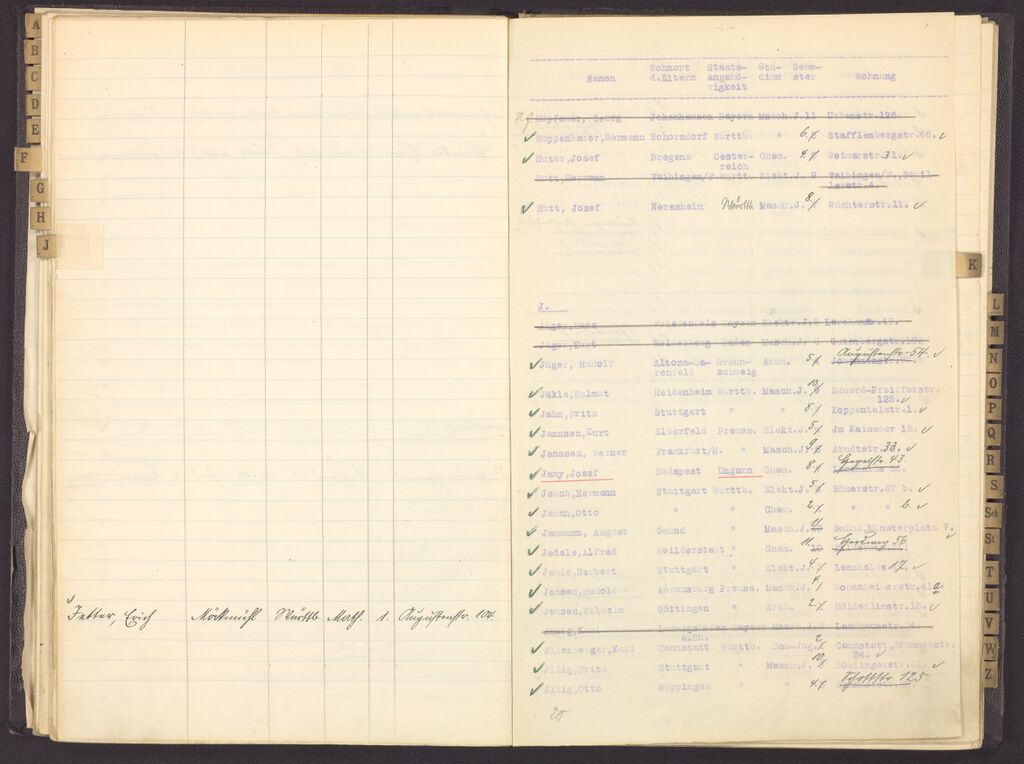 A
B
C
D
E
F
G
H
J
Jetter, Erich Möckmühl Württb Math. 1. Augustenstr. 104.
Wohnort Staats- Stu- Seme-
Namen d.Eltern angehö- dium ster Wohnung
rigkeit
Hupfauer, Georg Johanhausen Bayern Masch.J.11 Urbanstr.126.
Huppenbauer,Hermann Schorndorf Württb. " 6. Stafflenbergstr.66.
Huter,Josef Bregenz Oester- Chem. 4. Weimarstr.
reich
Hutt,Hermann Vaihingen/F.Württ. Elekt.J. 9 Vaihingen/F.,Schil-
lerstr.4.
Hutt, Josef Neresheim Württb Masch.J. 8. Wächterstr.11.
J.
Jäger,Hans Bayern Elekt.J.5 Lerchenstr.49.
Jäger,Kurt Heidelberg Baden Masch.J. Gutenbergstr.
Jäger, Rudolf Altona-Ba- Braun- Arch. 5. Augustenstr. 54.
renfeld schweig
Jäkle,Helmut Heidenheim Württb. Masch.J. 10 Eduard-Pfeifferstr.
125.
Jahn,Fritz Stuttgart " " 8. Koppentalstr.1.
Jannsen,Kurt Elberfeld Preuss. Elekt.J. 5. Im Kaisemer 15.
Janssen, Werner Frankfurt/M. " Masch.J. 9. Arndtstr.33.
Jany,Josef Budapest Ungarn Chem. 8. Hegelstr. 43.
Jauch,Hermann Stuttgart Württb. Elekt.J. 5. Römerstr.67 b.
Jauch,Otto " " Chem. 2. " " b.
Jaumann, August Gmünd " Masch.J. 11. Gmünd,Münsterplatz 7.
Jedele,Alfred Weilderstadt " Chem. 11. Herdweg 56
Jehle,Herbert Stuttgart " Elekt.J. 4. Lenzhalde 17.
Jensen,Rudolf Ahrensburg Preuss. Masch.J. 4. Hohenheimerstr.41a
Jensen,Wilhelm Göttingen " Arch. 2. Hölderlinstr.15.
Karl Ludwigshafen Bayern Masch.J.
a.Rh.
Illenberger,Karl Cannstatt Württb. Bau-Ing. 2. Cannstatt,Brunnenstr.
24.
Illig,Fritz Stuttgart " Masch.J. 10. Böblingerstr.
Illig,Otto Göppingen " " 4. Schottstr. 125.
20
K
L
M
N
O
P
Q
R
S
Sch
St
T
U
V
W
Z